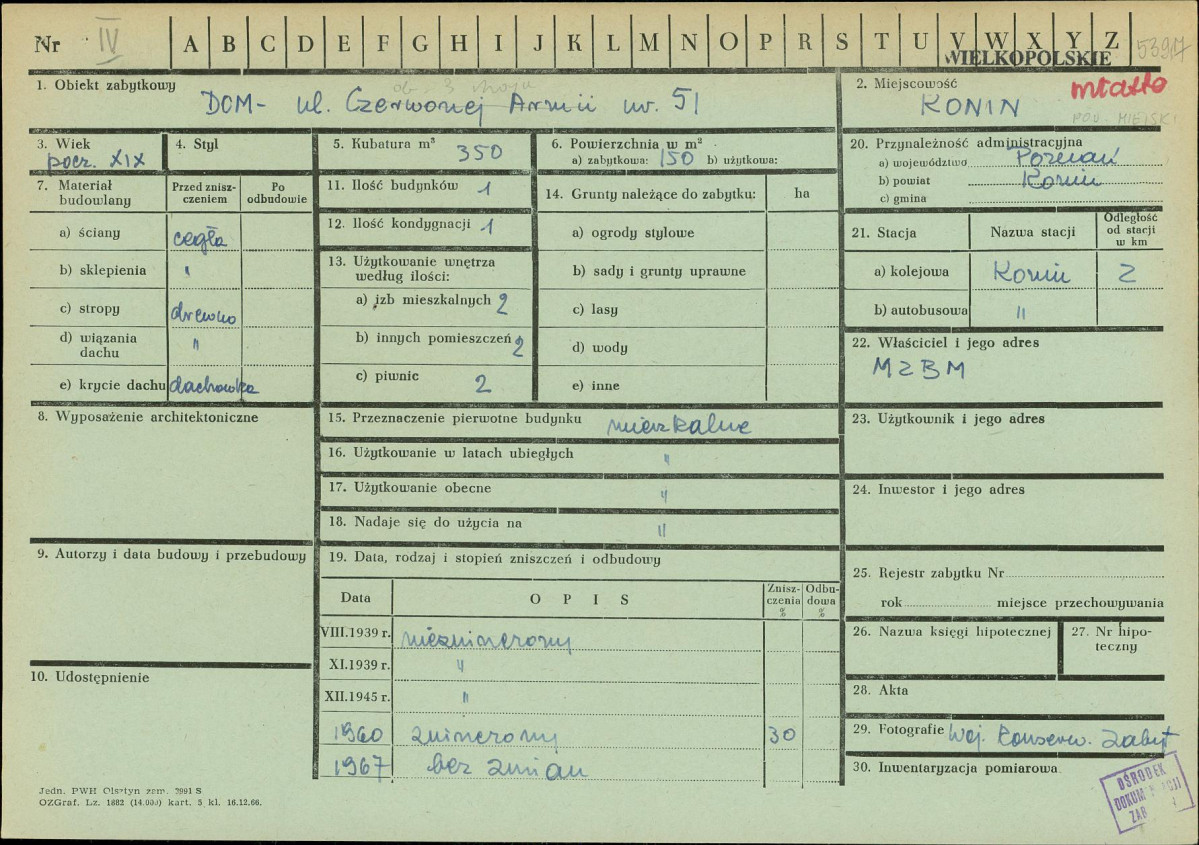 Nr IV A B C D E F G H I J K L M N O P R S T U V W X Y Z 5397
WIELKOPOLSKIE
1. Obiekt zabytkowy
ob. 3 Maja
DOM - ul. Czerwonej Armii nr. 51
2. Miejscowość
miasto
KONIN
POW. MIEJSKI
3. Wiek
pocz. XIX
4. Styl
5. Kubatura m³ 350
6. Powierzchnia w m²
a) zabytkowa: 150 b) użytkowa:
20. Przynależność administracyjna
a) województwo Poznań
b) powiat Konin
c) gmina
7. Materiał budowlany
Przed znisz-
czeniem
Po
odbudowie
a) ściany cegła
b) sklepienia "
c) stropy drewno
d) wiązania
dachu "
e) krycie dachu dachówka
11. Ilość budynków 1
12. Ilość kondygnacji 1
13. Użytkowanie wnętrza
według ilości:
a) izb mieszkalnych 2
b) innych pomieszczeń 2
c) piwnic 2
14. Grunty należące do zabytku: ha
a) ogrody stylowe
b) sady i grunty uprawne
c) lasy
d) wody
e) inne
21. Stacja Nazwa stacji
Odległość
od stacji
w km
a) kolejowa Konin 2
b) autobusowa "
22. Właściciel i jego adres
MZBM
8. Wyposażenie architektoniczne
15. Przeznaczenie pierwotne budynku mieszkalne
16. Użytkowanie w latach ubiegłych "
17. Użytkowanie obecne "
18. Nadaje się do użycia na "
23. Użytkownik i jego adres
24. Inwestor i jego adres
9. Autorzy i data budowy i przebudowy
19. Data, rodzaj i stopień zniszczeń i odbudowy
Data O P I S
Znisz-
czenia
%
Odbu-
dowa
%
VIII.1939 r. niezniszczony
XI.1939 r. "
XII.1945 r. "
1960 zniszczony 30
1967 bez zmian
10. Udostępnienie
25. Rejestr zabytku Nr
rok miejsce przechowywania
26. Nazwa księgi hipotecznej
27. Nr hipo-
teczny
28. Akta
29. Fotografie Woj. Konserw. Zabyt
30. Inwentaryzacja pomiarowa
OŚRODEK
Jedn. PWH Olsztyn zam. 2991 S
OZGraf. Lz. 1882 (14.000) kart. 5 kl. 16.12.66.